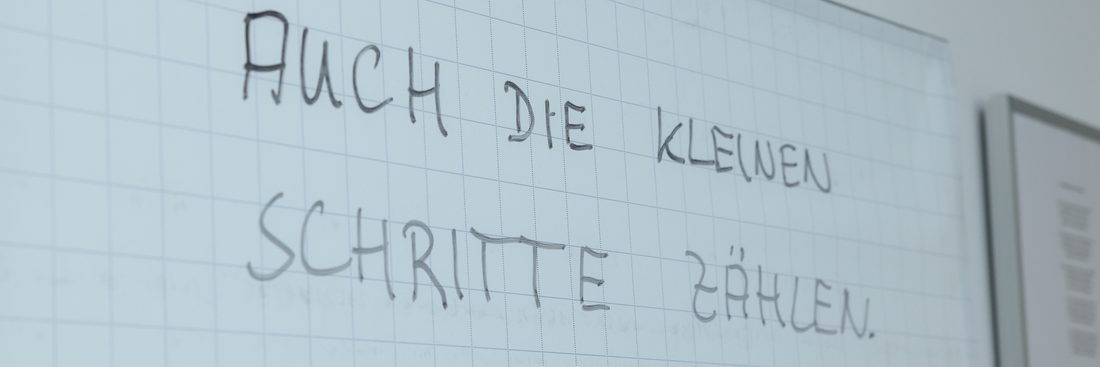 AUCH DIE KLEINEN
SCHRITTE ZÄHLEN.